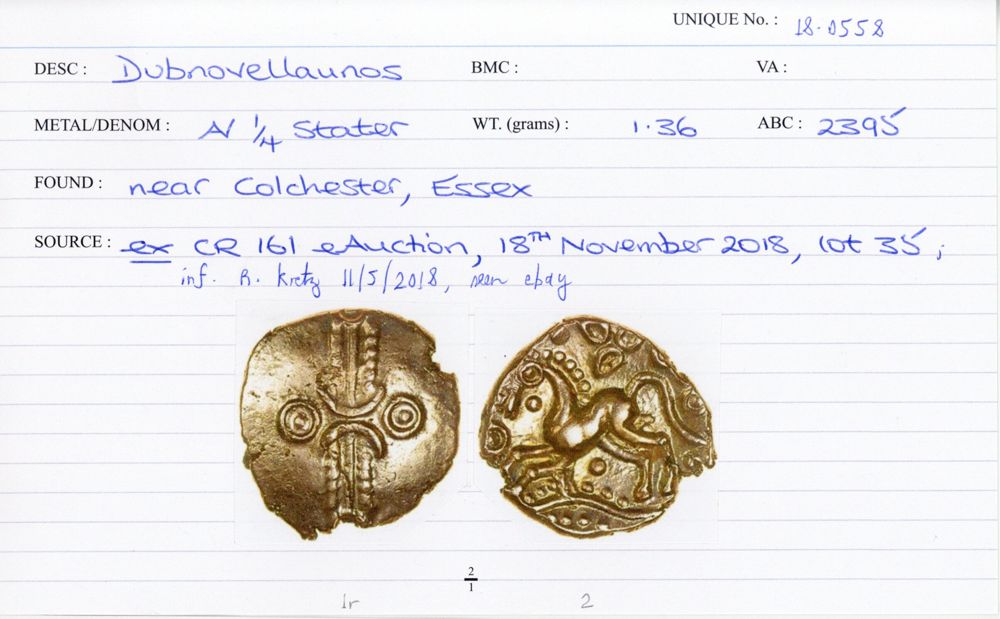 UNIQUE No. : 18.0558
DESC : Dubnovellaunos BMC : VA :
METAL/DENOM : AV 1/4 Stater WT. (grams) : 1.36 ABC : 2395
FOUND : near Colchester, Essex
SOURCE : ex CR 161 eAuction, 18TH November 2018, lot 35 ;
inf. R. Kretz 11/5/2018, seen ebay
2/1
1r 2